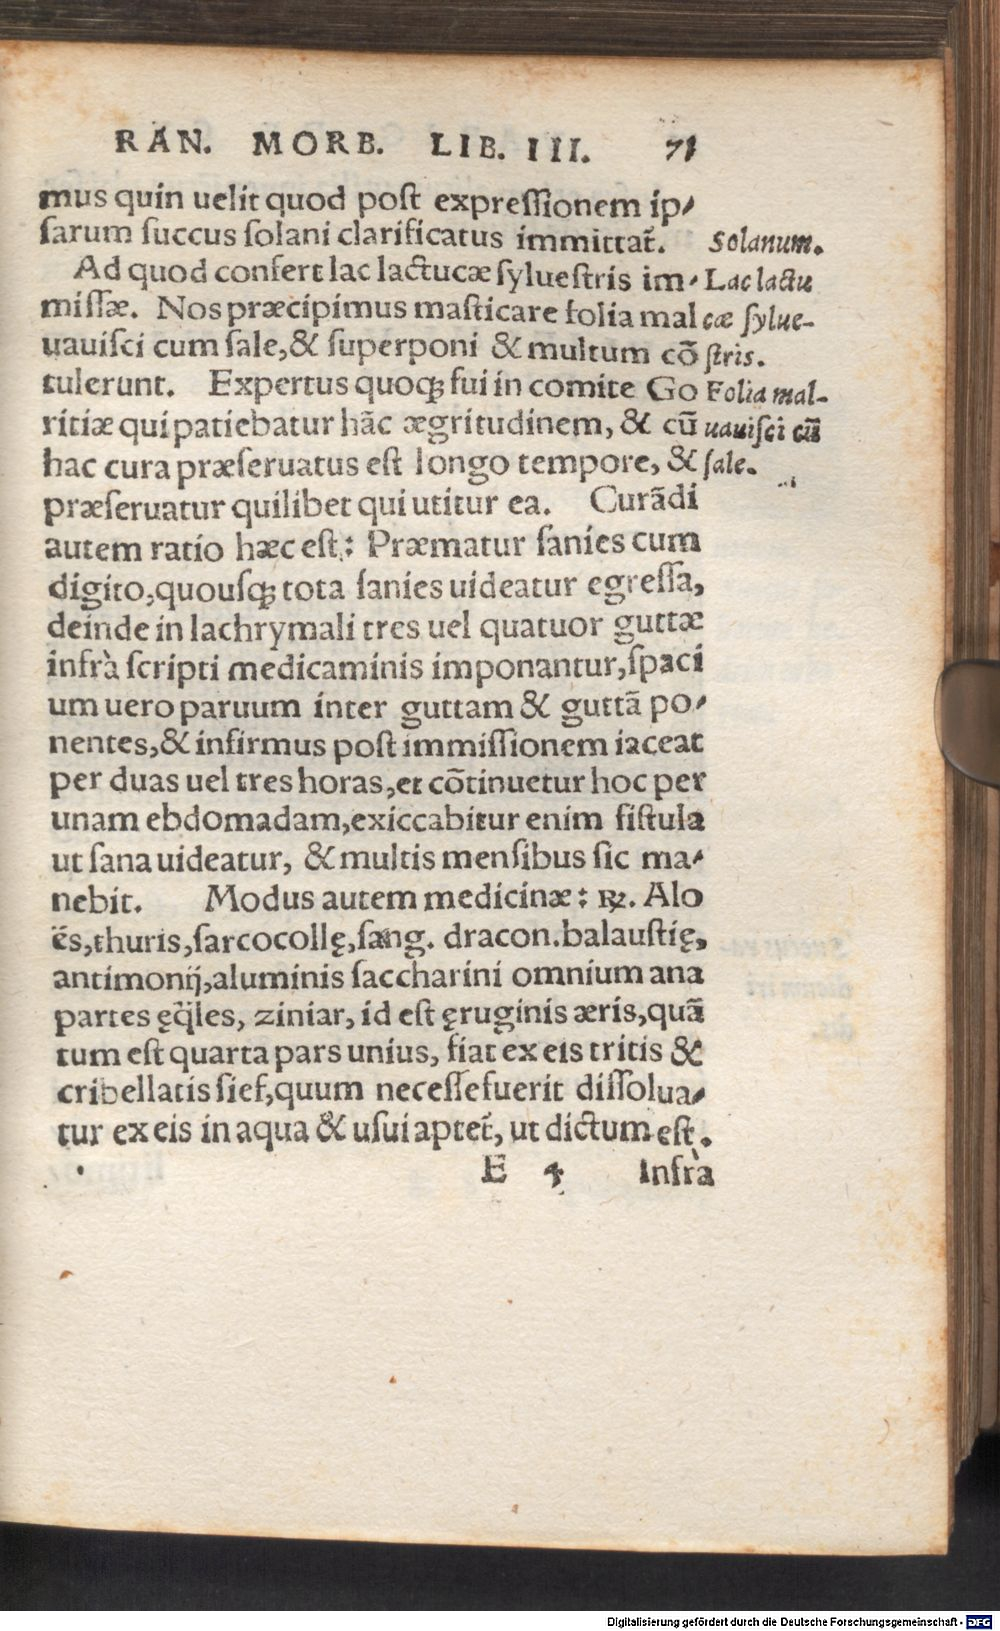 RAN. MORB. LIB. III. 71
mus quin uelit quod post expreſſionem ip⸗
ſarum ſuccus ſolani clarificatus immittat̃.
Solanum.
Ad quod confert lac lactucæ ſylueſtris im⸗
Lac lactu
miſſæ. Nos præcipimus maſticare folia mal
cæ ſylue-
uauiſci cum ſale,& ſuperponi & multum cõ
ſtris.
tulerunt. Expertus quoqꝫ fui in comite Go
Folia mal-
ritiæ qui patiebatur hãc ægritudinem, & cũ
uauiſci cũ
hac cura præſeruatus eſt longo tempore, &
ſale.
præſeruatur quilibet qui utitur ea. Curãdi
autem ratio hæc eſt: Præmatur ſanies cum
digito,quouſqꝫ tota ſanies uideatur egreſſa,
deinde in lachrymali tres uel quatuor guttæ
infrà ſcripti medicaminis imponantur,ſpaci
um uero paruum inter guttam & guttã po⸗
nentes,& infirmus poſt immiſſionem iaceat
per duas uel tres horas,et cõtinuetur hoc per
unam ebdomadam,exiccabitur enim fiſtula
ut ſana uideatur, & multis menſibus ſic ma⸗
nebit. Modus autem medicinæ: ℞. Alo
ës,thuris,ſarcocollę,ſang. dracon.balauſtię,
antimonij,aluminis ſaccharini omnium ana
partes ęq̃les, ziniar, id eſt ęruginis æris,quã
tum eſt quarta pars unius, fiat ex eis tritis &
cribellatis ſief,quum neceſſe fuerit diſſolua⸗
tur ex eis in aqua & uſui aptet̃, ut dictum eſt.
E 4 Infrà
Digitalisierung gefördert durch die Deutsche Forschungsgemeinschaft - DFG